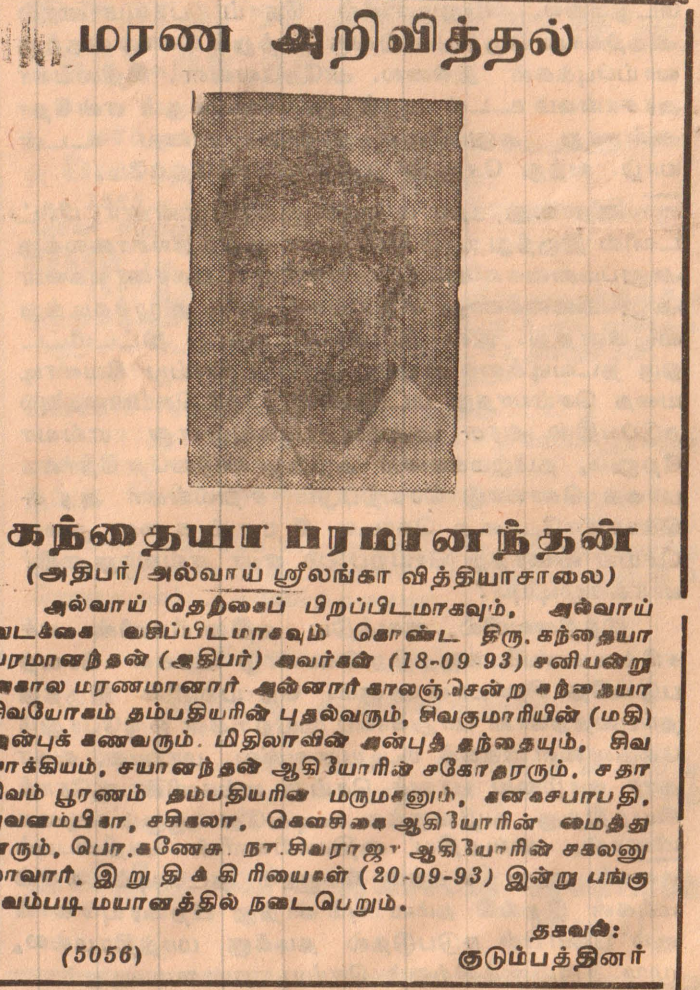 மரண அறிவித்தல்
கந்தையா பரமானந்தன்
(அதிபர்/அல்வாய் ஸ்ரீலங்கா வித்தியாசாலை)
அல்வாய் தெற்கைப் பிறப்பிடமாகவும், அல்வாய்
வடக்கை வசிப்பிடமாகவும் கொண்ட திரு. கந்தையா
பரமானந்தன் (அதிபர்) அவர்கள் (18-09-93) சனியன்று
அகால மரணமானார் அன்னார் காலஞ்சென்ற கந்தையா
சிவயோகம் தம்பதியரின் புதல்வரும், சிவகுமாரியின் (மதி)
அன்புக் கணவரும். மிதிலாவின் அன்புத் தந்தையும், சிவ
பாக்கியம், சயானந்தன் ஆகியோரின் சகோதரரும். சதா
சிவம் பூரணம் தம்பதியரின் மருமகனும், கனகசபாபதி,
சசிகலா, கௌசிகை ஆகியோரின் மைத்து
னரும், பொ.கணேசு. நா.சிவராஜா ஆகியோரின் சகலனு
மாவார். இறுதிக்கிரியைகள் (20-09-93) இன்று பங்கு
வம்படி மயானத்தில் நடைபெறும்.
தகவல்:
(5056) குடும்பத்தினர்